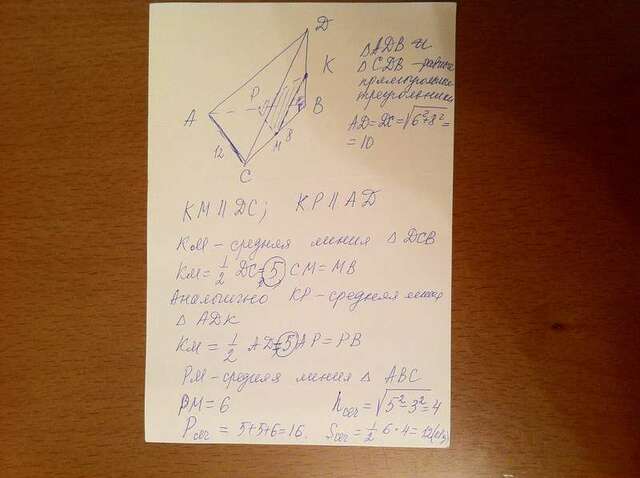 D
K
A
P
B
12
M
8
C
△ADB и
△CDB - равные
прямоугольные
треугольники
AD = DC = √6²+8² =
= 10
KM || DC; KP || AD
KM - средняя линия △ DCB
KM = 1/2 DC = 5 CM = MB
Аналогично KP - средняя линия
△ ADK
KM = 1/2 AD = 5 AP = PB
PM - средняя линия △ ABC
PM = 6 hсеч = √5²-3² = 4
Pсеч = 5+5+6=16. Sсеч = 1/2 6·4 = 12